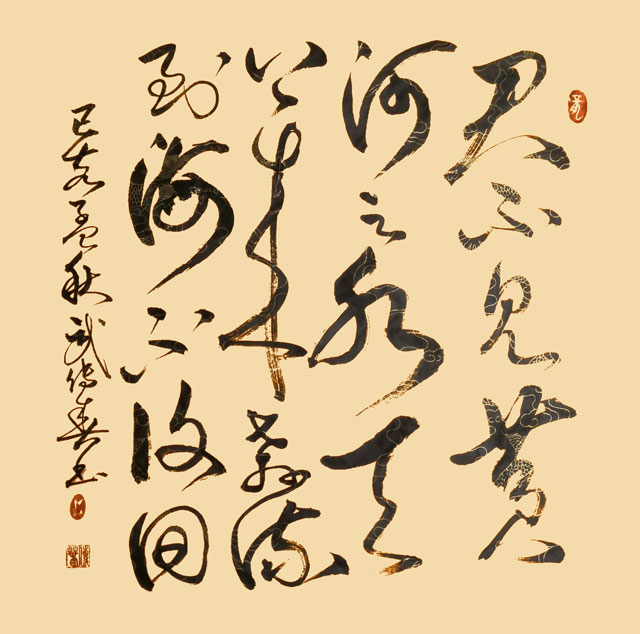 君不見黄
河之水天
上来奔流
到海不復回
己亥孟秋武傳春書